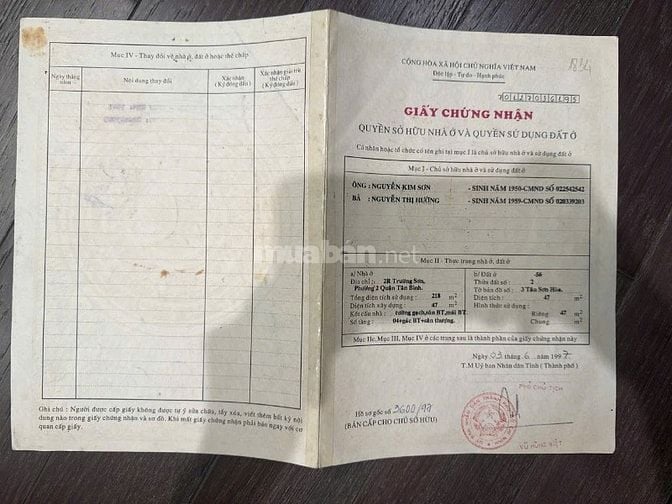 Mục IV - Thay đổi về nhà ở, đất ở hoặc thế chấp
Ngày tháng năm
Nội dung thay đổi
Xác nhận (Ký đóng dấu)
Xác nhận giải trừ thế chấp (Ký đóng dấu)
Ghi chú : Người được cấp giấy không được tự ý sửa chữa, tẩy xóa, viết thêm bất kỳ nội
dung nào trong giấy chứng nhận và sơ đồ. Khi mất giấy chứng nhận phải báo ngay với cơ
quan cấp giấy.
CỘNG HÒA XÃ HỘI CHỦ NGHĨA VIỆT NAM
Độc lập - Tự do - Hạnh phúc
GIẤY CHỨNG NHẬN
QUYỀN SỞ HỮU NHÀ Ở VÀ QUYỀN SỬ DỤNG ĐẤT Ở
Cá nhân hoặc tổ chức có tên ghi tại mục I là chủ sở hữu nhà ở và sử dụng đất ở
Mục I - Chủ sở hữu nhà ở và sử dụng đất ở
ÔNG : NGUYỄN KIM SƠN - SINH NĂM 1950-CMND SỐ 022542542
BÀ : NGUYỄN THỊ HƯỜNG - SINH NĂM 1959-CMND SỐ 020339203
muaban.net
Mục II - Thực trạng nhà ở, đất ở
a/ Nhà ở b/ Đất ở -56
Địa chỉ : 2R Trường Sơn, Thửa đất số : 2
Phường 2 Quận Tân Bình. Tờ bản đồ số : 3 Tân Sơn Hòa.
Tổng diện tích sử dụng : 218 m2 Diện tích : 47 m2
Diện tích xây dựng : 47 m2 Hình thức sử dụng :
Kết cấu nhà : tường gạch, sàn BT, mái BT. Riêng 47 m2
Số tầng : 04+gác BT+sân thượng. Chung m2
Mục IIc, Mục III, Mục IV ở các trang sau là thành phần của giấy chứng nhận này
Ngày 03 tháng 6 năm 1997
T.M Uỷ ban Nhân dân Tỉnh ( Thành phố )
PHÓ CHỦ TỊCH
Hồ sơ gốc số 3600/97
(BẢN CẤP CHO CHỦ SỞ HỮU)
VŨ HÙNG VIỆT